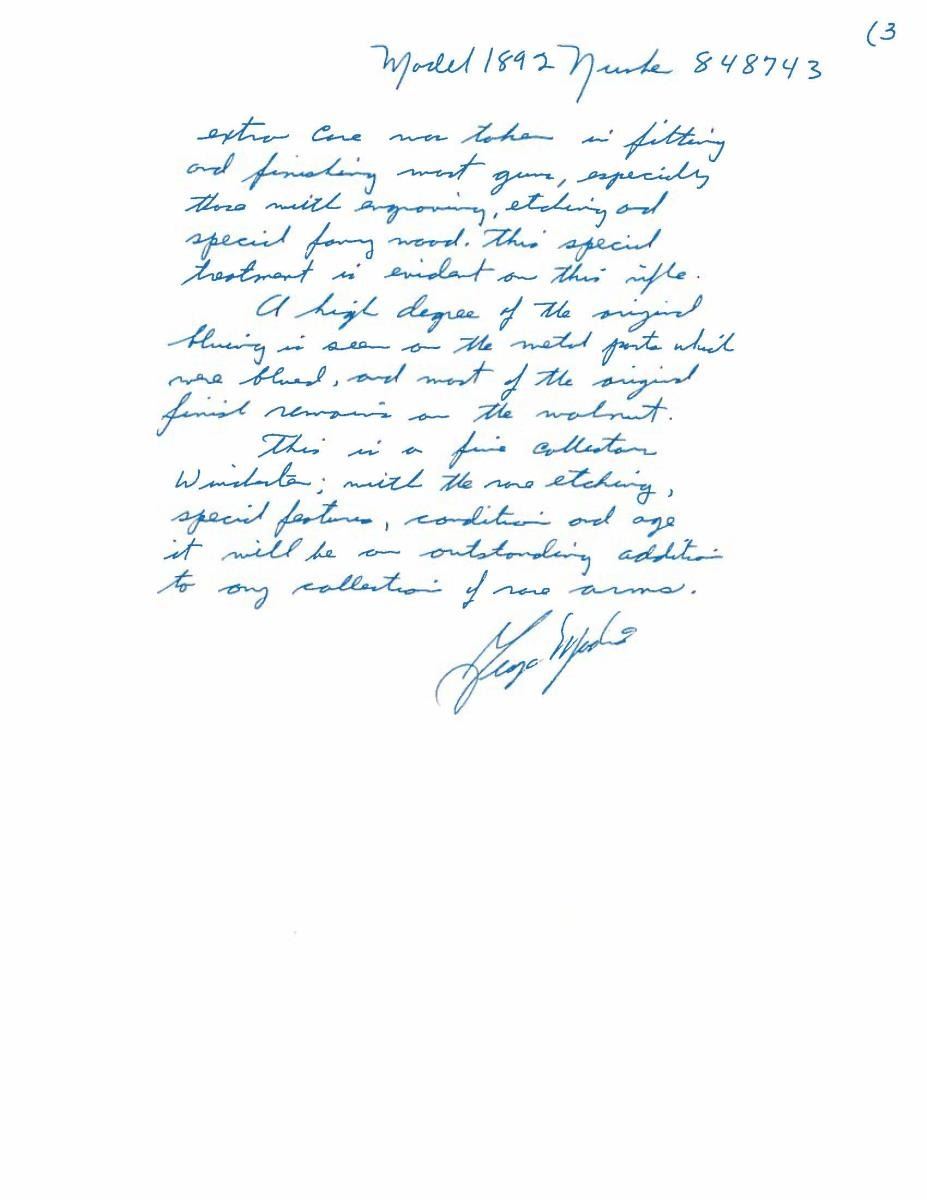 (3
Model 1892 Number 848743
extra care was taken in fitting
and finishing most guns, especially
those with engraving, etching and
special fancy wood. This special
treatment is evident on this rifle.
A high degree of the original
bluing is seen on the metal parts which
were blued, and most of the original
finish remains on the walnut.
This is a fine collectors
Winchester; with the rare etching,
special features, condition and age
it will be an outstanding addition
to any collection of rare arms.
George Madis